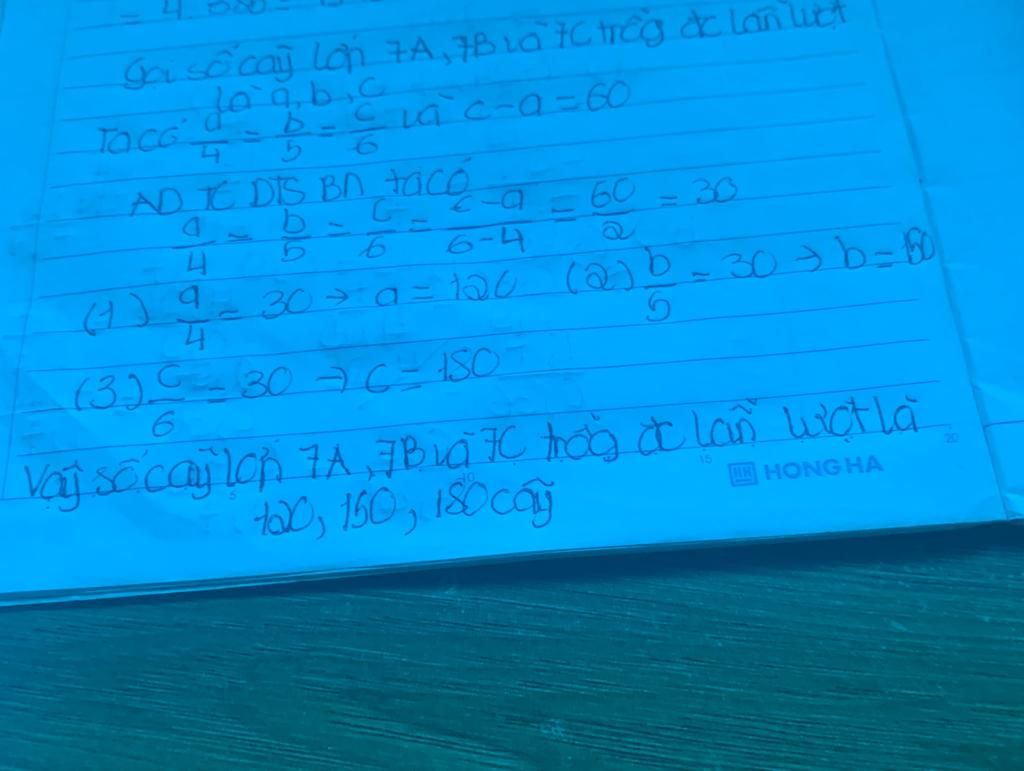 = 4.
Gọi số cây lớp 7A, 7B và 7C trồng đc lần lượt
là a, b, c
Ta có a/4 = b/5 = c/6 và c-a = 60
AD TC DTS BN ta có
a/4 = b/5 = c/6 = c-a/6-4 = 60/2 = 30
(1) a/4 = 30 → a = 120 (2) b/5 = 30 → b = 150
(3) c/6 = 30 → c = 180
Vậy số cây lớp 7A, 7B và 7C trồng đc lần lượt là
120, 150, 180 cây
HONG HA